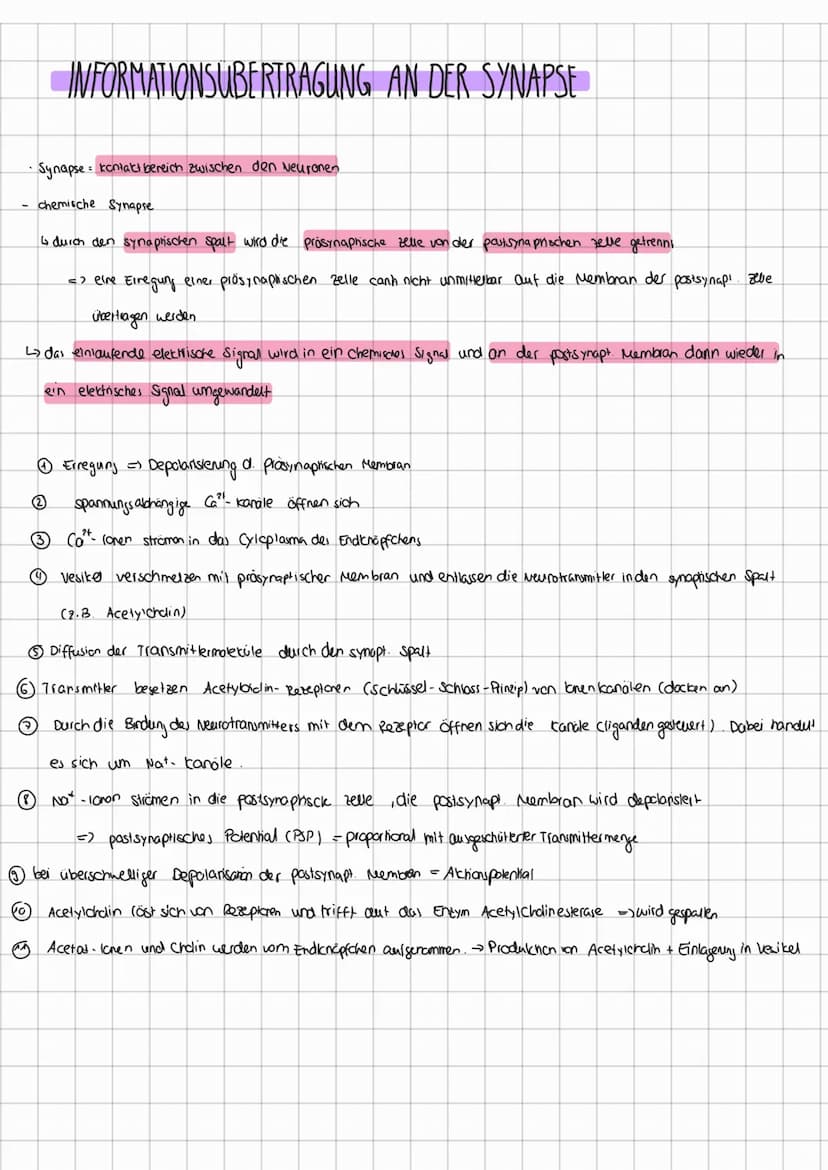 INFORMATIONSÜBERTRAGUNG AN DER SYNAPSE
· Synapse = Kontaktbereich zwischen den Neuronen
- chemische Synapse
↳ durch den synaptischen Spalt wird die präsynaptische Zelle von der postsynaptischen Zelle getrennt
=> eine Erregung einer präsynaptischen Zelle kann nicht unmittelbar auf die Membran der postsynapt. Zelle
übertragen werden
↳ das einlaufende elektrische Signal wird in ein chemisches Signal und an der postsynapt. Membran dann wieder in
ein elektrisches Signal umgewandelt
① Erregung => Depolarisierung d. präsynaptischen Membran
② spannungsabhängige Ca²⁺- Kanäle öffnen sich
③ Ca²⁺- Ionen strömen in das Cytoplasma des Endknöpfchens
④ Vesikel verschmelzen mit präsynaptischer Membran und entlassen die Neurotransmitter in den synaptischen Spalt
(z.B. Acetylcholin)
⑤ Diffusion der Transmittermoleküle durch den synapt. Spalt
⑥ Transmitter besetzen Acetylcholin- Rezeptoren (Schlüssel-Schloss-Prinzip) von Ionenkanälen (docken an)
⑦ Durch die Bindung des Neurotransmitters mit dem Rezeptor öffnen sich die Kanäle (liganden gesteuert). Dabei handelt
es sich um Na+- Kanäle.
⑧ Na⁺ -Ionen strömen in die postsynaptische Zelle , die postsynapt. Membran wird depolarisiert
=> postsynaptisches Potential (PSP) = proportional mit ausgeschütteter Transmittermenge
⑨ bei überschwelliger Depolarisation der postsynapt. Membran = Aktionspotential
⑩ Acetylcholin löst sich von Rezeptoren und trifft auf das Enzym Acetylcholinesterase => wird gespalten
⑪ Acetat-Ionen und Cholin werden vom Endknöpfchen aufgenommen. → Produktion von Acetylcholin + Einlagerung in Vesikel